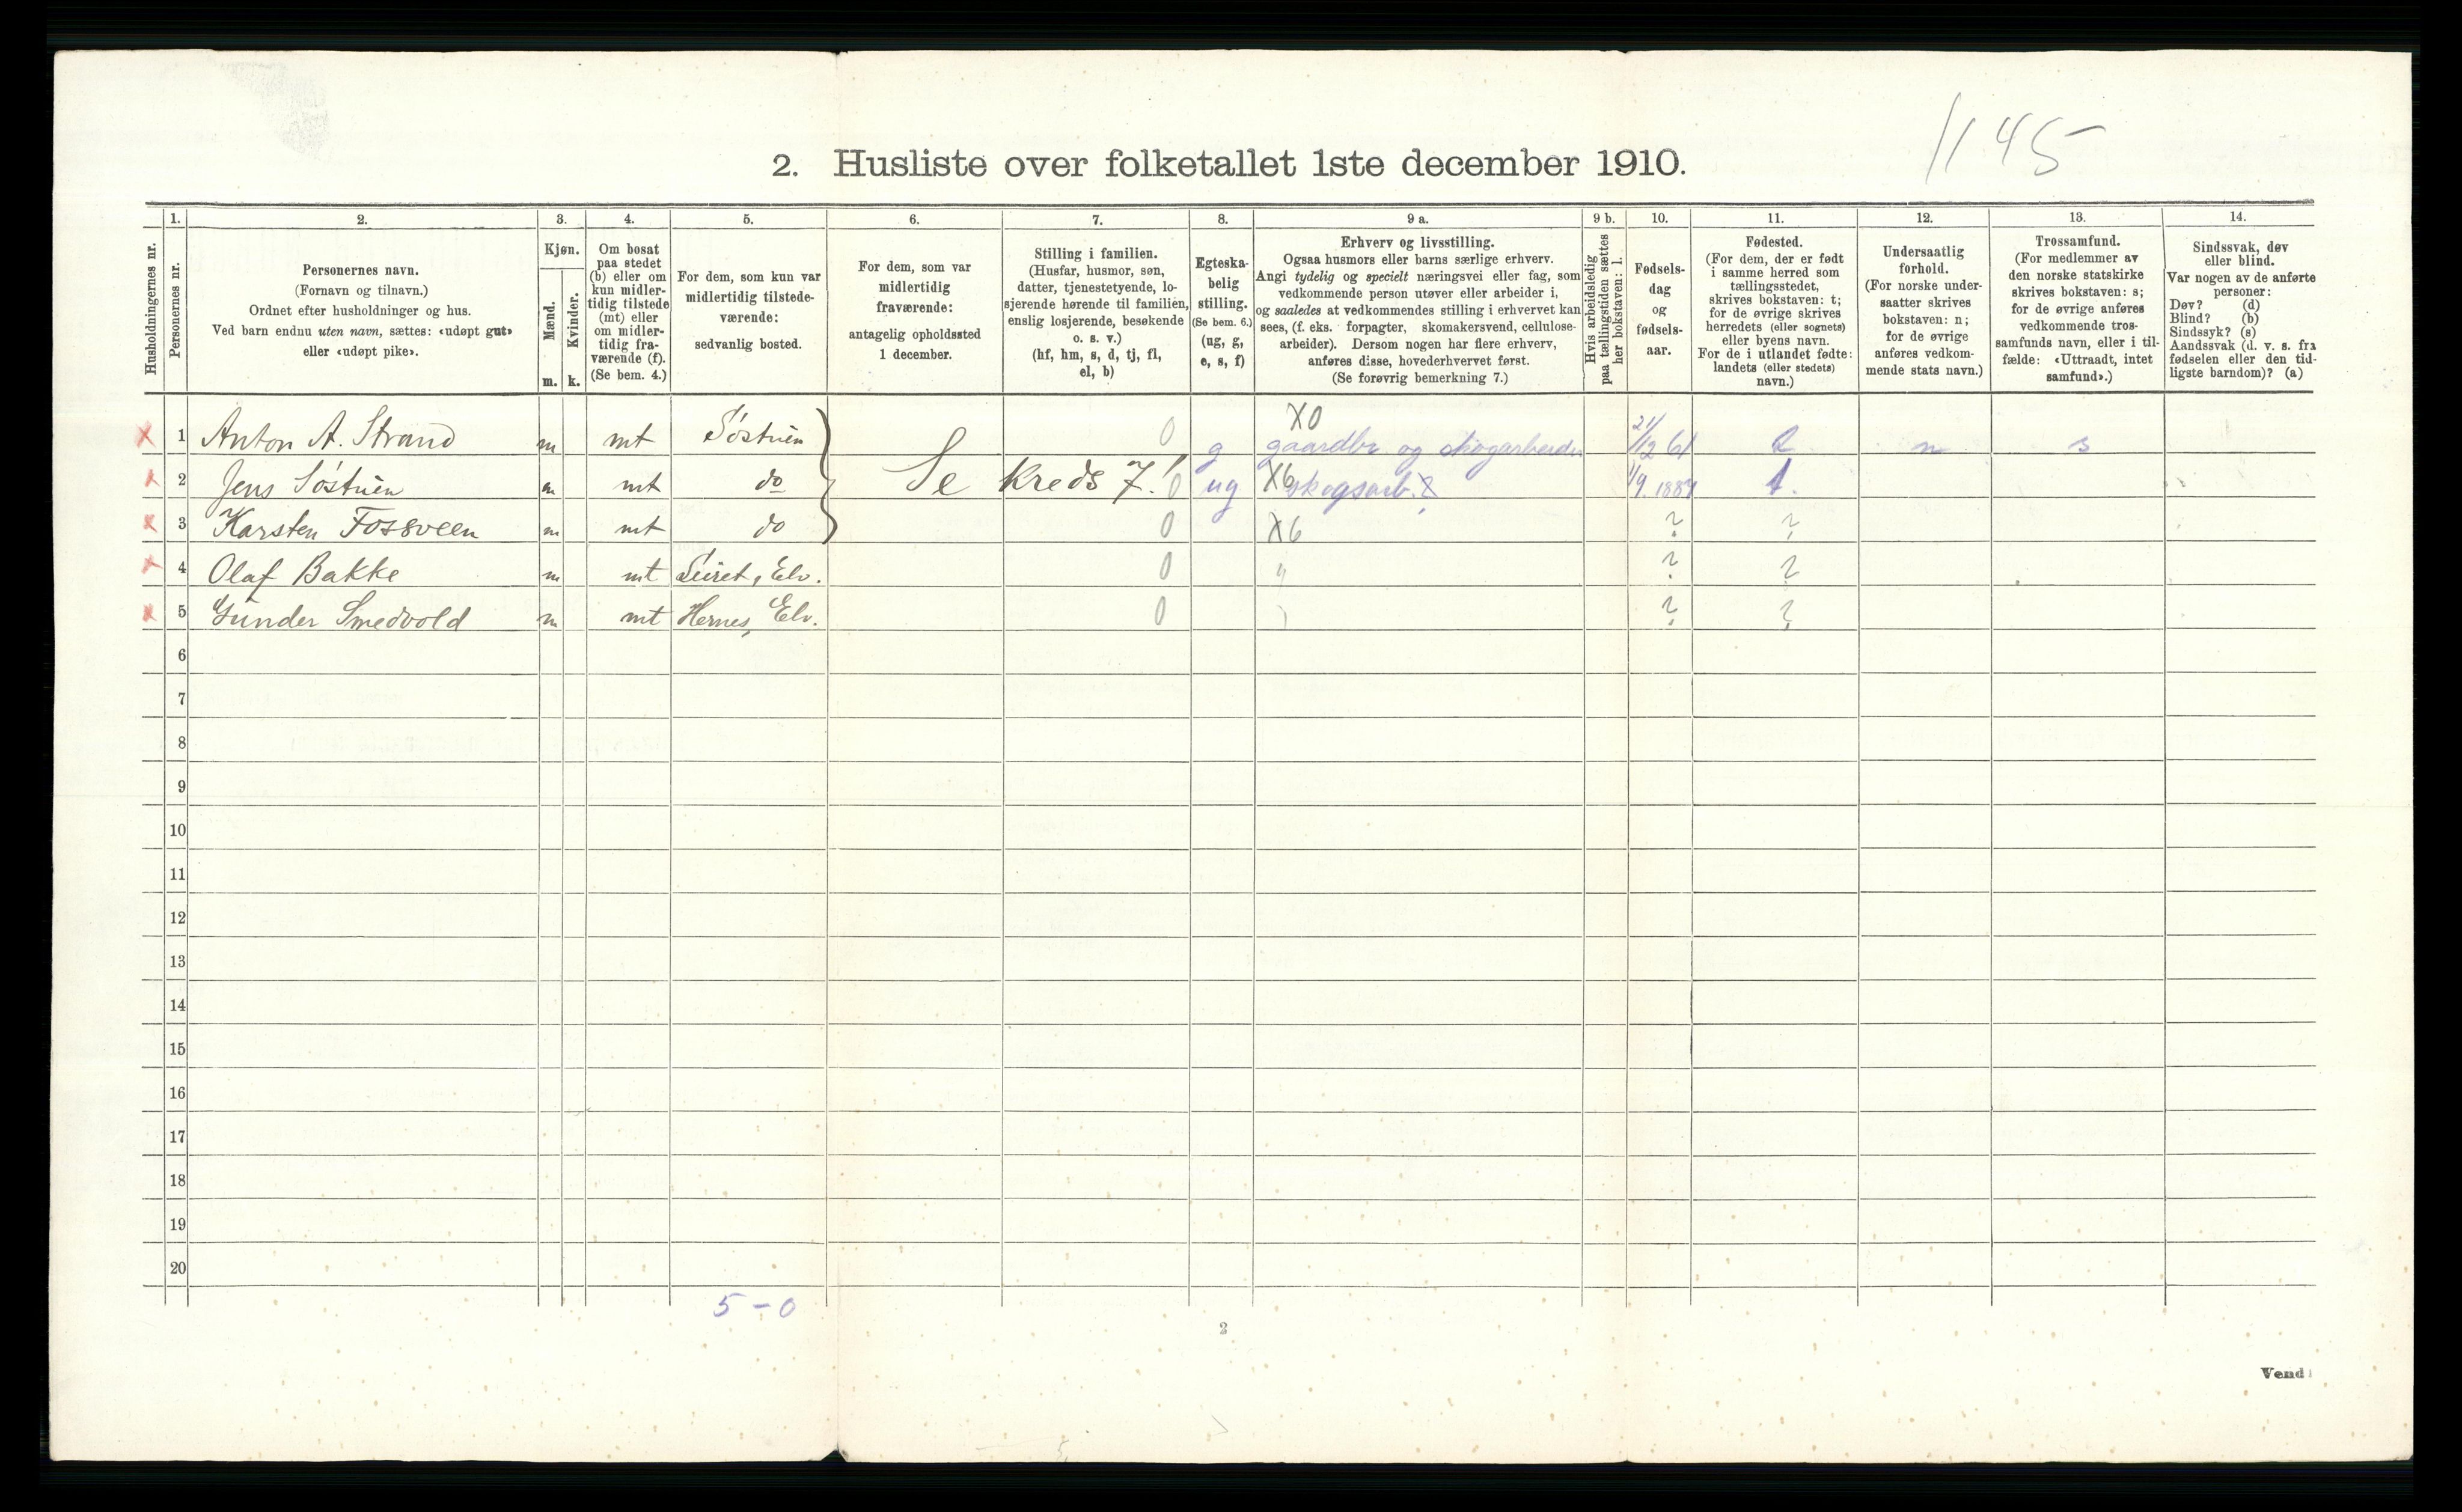 1145
2. Husliste over folketallet 1ste december 1910.
1. 2. 3. 4. 5. 6. 7. 8. 9 a. 9 b. 10. 11. 12. 13. 14.
Husholdningernes nr.
Personernes nr.
Personernes navn.
(Fornavn og tilnavn.)
Ordnet efter husholdninger og hus.
Ved barn endnu uten navn, sættes: «udøpt gut»
eller «udøpt pike».
Kjøn.
Mænd.
Kvinder.
m. k.
Om bosat
paa stedet
(b) eller om
kun midler-
tidig tilstede
(mt) eller
om midler-
tidig fra-
værende (f).
(Se bem. 4.)
For dem, som kun var
midlertidig tilstede-
værende:
sedvanlig bosted.
For dem, som var
midlertidig
fraværende:
antagelig opholdssted
1 december.
Stilling i familien.
(Husfar, husmor, søn,
datter, tjenestetyende, lo-
sjerende hørende til familien,
enslig losjerende, besøkende
o. s. v.)
(hf, hm, s, d, tj, fl,
el, b)
Egteska-
belig
stilling.
(Se bem. 6.)
(ug, g,
e, s, f)
Erhverv og livsstilling.
Ogsaa husmors eller barns særlige erhverv.
Angi tydelig og specielt næringsvei eller fag, som
vedkommende person utøver eller arbeider i,
og saaledes at vedkommendes stilling i erhvervet kan
sees, (f. eks. forpagter, skomakersvend, cellulose-
arbeider). Dersom nogen har flere erhverv,
anføres disse, hovederhvervet først.
(Se forøvrig bemerkning 7.)
Hvis arbeidsledig
paa tællingstiden sættes
her bokstaven: l.
Fødsels-
dag
og
fødsels-
aar.
Fødested.
(For dem, der er født
i samme herred som
tællingsstedet,
skrives bokstaven: t;
for de øvrige skrives
herredets (eller sognets)
eller byens navn.
For de i utlandet fødte:
landets (eller stedets)
navn.)
Undersaatlig
forhold.
(For norske under-
saatter skrives
bokstaven: n;
for de øvrige
anføres vedkom-
mende stats navn.)
Trossamfund.
(For medlemmer av
den norske statskirke
skrives bokstaven: s;
for de øvrige anføres
vedkommende tros-
samfunds navn, eller i til-
fælde: «Uttraadt, intet
samfund».)
Sindssvak, døv
eller blind.
Var nogen av de anførte
personer:
Døv? (d)
Blind? (b)
Sindssyk? (s)
Aandssvak (d. v. s. fra
fødselen eller den tid-
ligste barndom)? (a)
X0
x 1 Anton A. Strand m mt Søstuen 0 g gaardbr og skogarbeider 21/12 61 t n s
x 2 Jens Søstuen m mt do Se kreds 7! 0 ug X6 skogsarb. 1/9. 1887 t.
x 3 Karsten Fossveen m mt do 0 X6 ? ?
x 4 Olaf Bakke m mt Leiret, Elv. 0 " ? ?
x 5 Gunder Smedvold m mt Hernes, Elv. 0 ? ?
6
7
8
9
10
11
12
13
14
15
16
17
18
19
20
5 - 0
2
Vend